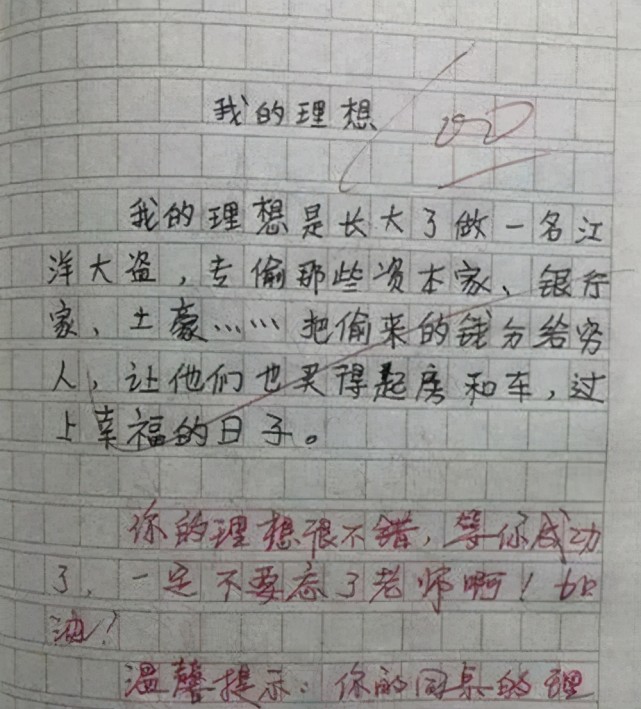 我的理想
我的理想是长大了做一名江
洋大盗，专偷那些资本家、银行
家、土豪……把偷来的钱分给穷
人，让他们也买得起房和车，过
上幸福的日子。
你的理想很不错，等你成功
了，一定不要忘了老师啊！加
油！
温馨提示：你的同桌的理